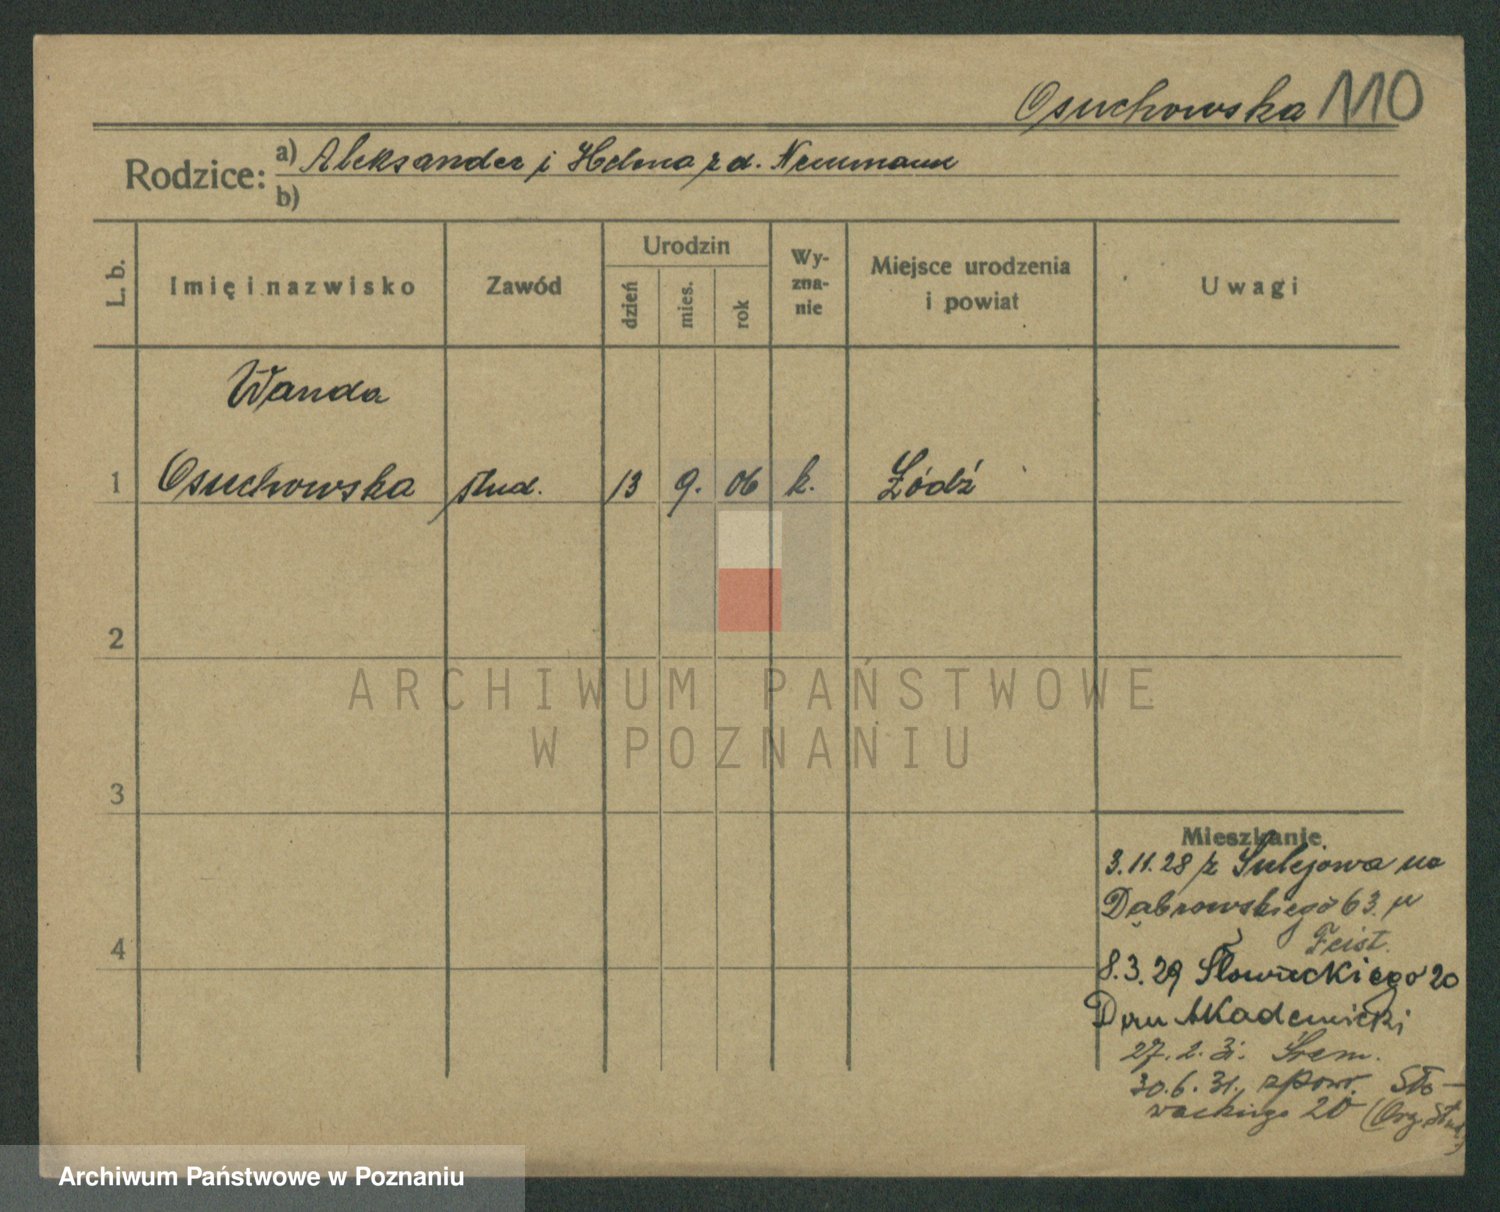 Osuchowska 110
Rodzice: a) Aleksander i Helena z d. Neumann
b)
L. b.
Imię i nazwisko
Zawód
Urodzin
dzień
mies.
rok
Wy-
zna-
nie
Miejsce urodzenia
i powiat
Uwagi
Wanda
1 Osuchowska stud. 13 9. 06 k. Łódź
2
ARCHIWUM PAŃSTWOWE
W POZNANIU
3
Mieszkanie
3.11.28 z Sulejowa na
Dąbrowskiego 63. u
Feist.
4
8.3.29 Słowackiego 20
Dom Akademicki
27.2.31. Śrem.
30.6.31. z pow. Sło-
wackiego 20 (Org. Stud.)
Archiwum Państwowe w Poznaniu